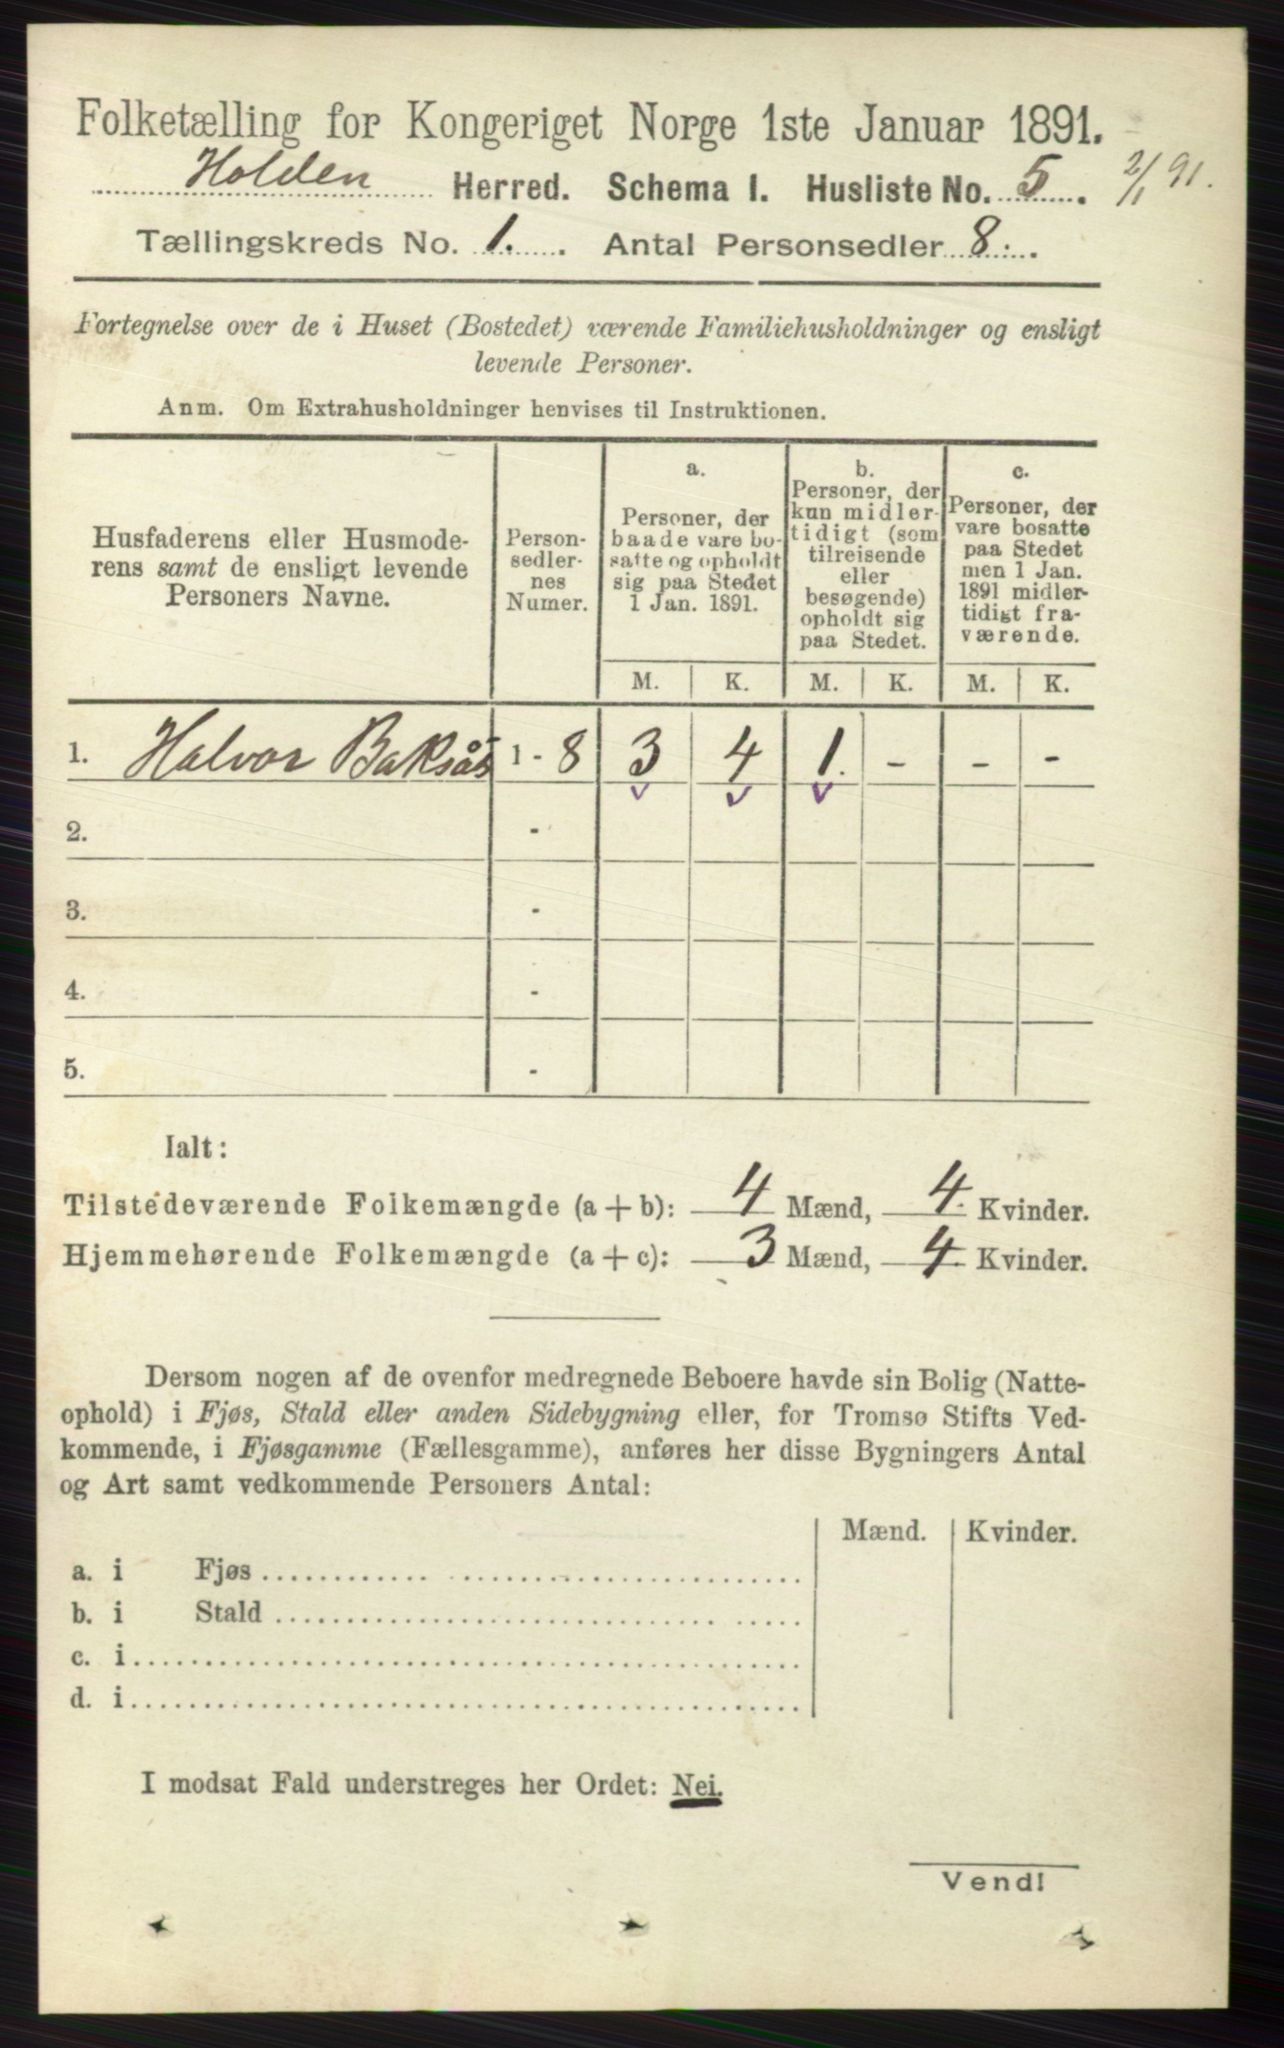 Folketælling for Kongeriget Norge 1ste Januar 1891.
Holden Herred. Schema I. Husliste No. 5. 2/1 91.
Tællingskreds No. 1. Antal Personsedler 8.
Fortegnelse over de i Huset (Bostedet) værende Familiehusholdninger og ensligt
levende Personer.
Anm. Om Extrahusholdninger henvises til Instruktionen.
Husfaderens eller Husmode-
rens samt de ensligt levende
Personers Navne.
Person-
sedler-
nes
Numer.
a.
Personer, der
baade vare bo-
satte og opholdt
sig paa Stedet
1 Jan. 1891.
b.
Personer, der
kun midler-
tidigt (som
tilreisende
eller
besøgende)
opholdt sig
paa Stedet.
c.
Personer, der
vare bosatte
paa Stedet
men 1 Jan.
1891 midler-
tidigt fra-
værende.
M. K. M. K. M. K.
1. Halvor Baksås 1 - 8 3 4 1. - - -
2. -
3. -
4. -
5. -
Ialt:
Tilstedeværende Folkemængde (a + b): 4 Mænd, 4 Kvinder.
Hjemmehørende Folkemængde (a + c): 3 Mænd, 4 Kvinder.
Dersom nogen af de ovenfor medregnede Beboere havde sin Bolig (Natte-
ophold) i Fjøs, Stald eller anden Sidebygning eller, for Tromsø Stifts Ved-
kommende, i Fjøsgamme (Fællesgamme), anføres her disse Bygningers Antal
og Art samt vedkommende Personers Antal:
Mænd. Kvinder.
a. i Fjøs
b. i Stald
c. i
d. i
I modsat Fald understreges her Ordet: Nei.
Vend!